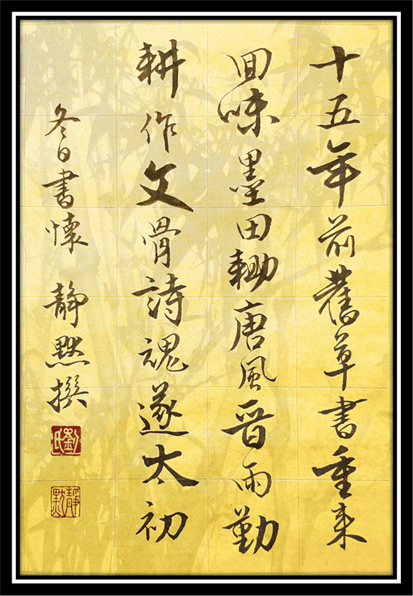 十五年前舊草書重來
回味墨田耡唐風晉雨勤
耕作文骨詩魂遂太初
冬日書懷 靜默撰
劉氏
靜默